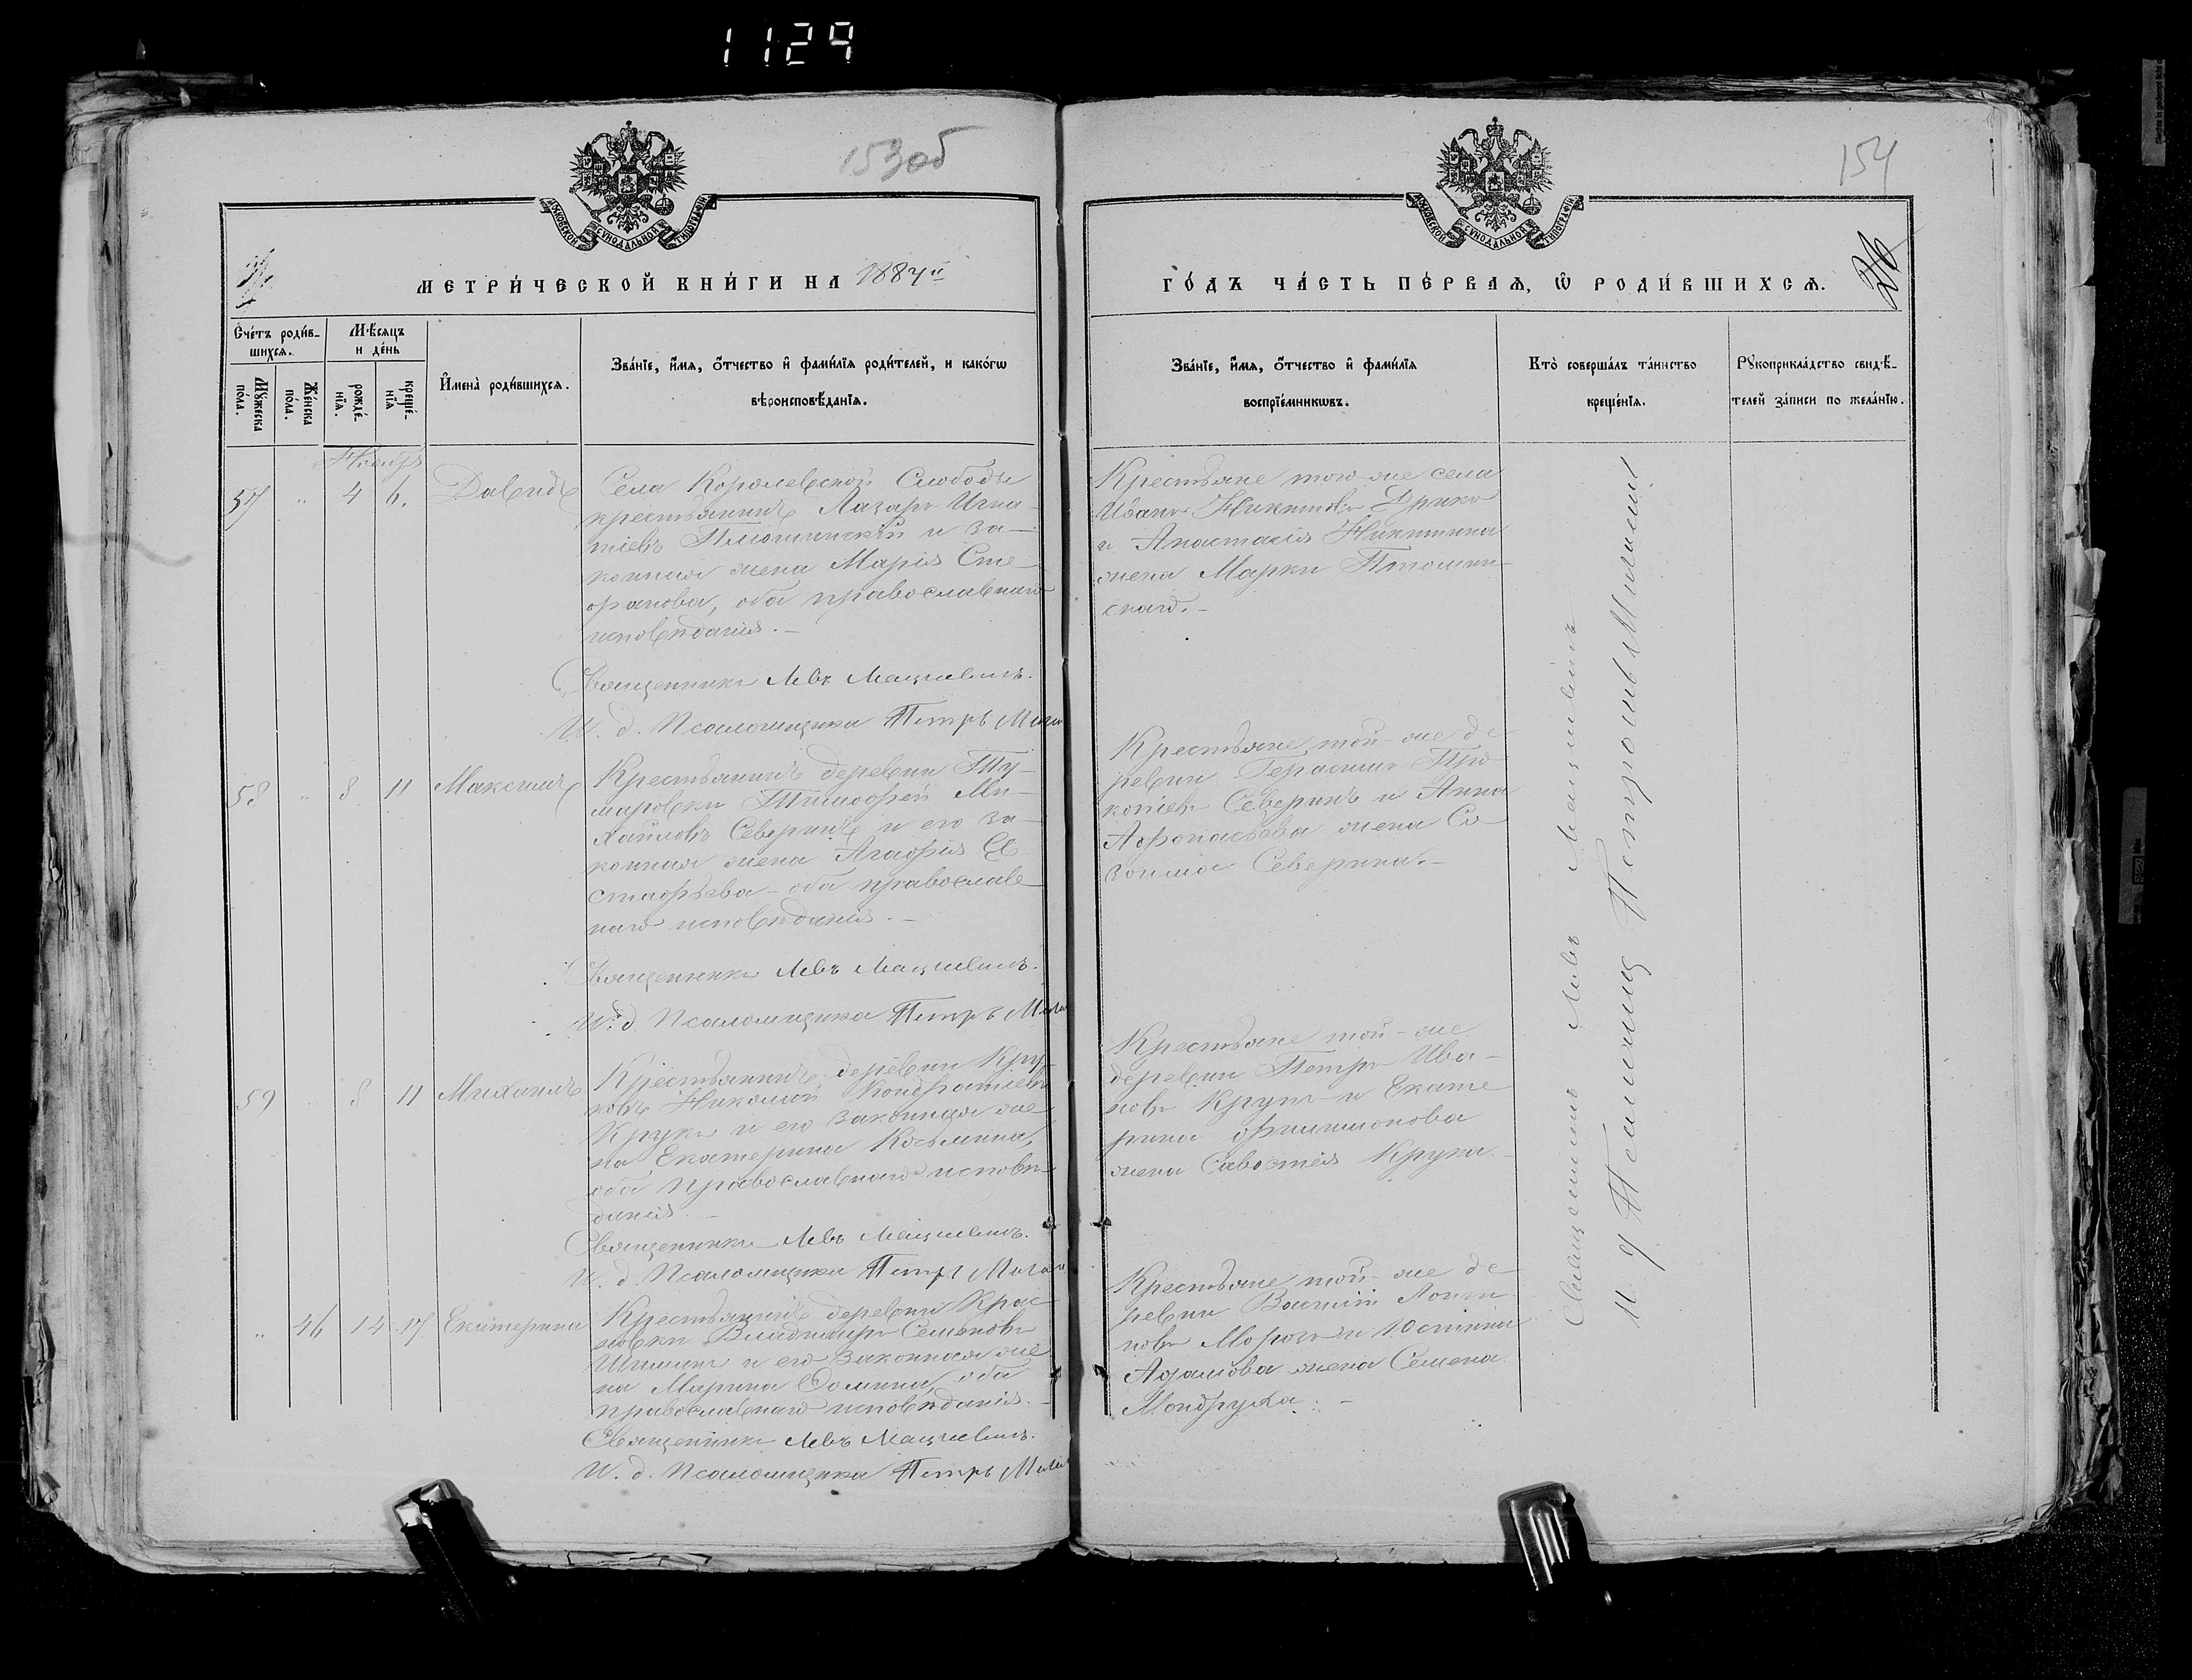 1129
153об
154
МЕТРИЧЕСКОЙ КНИГИ НА 1887й
ГОДЪ ЧАСТЬ ПЕРВАЯ, Ѿ РОДИВШИХСЯ.
Счетъ родившихся.
Мужеска пола.
Женска пола.
Мѣсяцъ и день
рожденія.
крещенія
Имена родившихся.
Званіе, имя, отчество и фамилія родителей, и какогѡ
вѣроисповѣданія.
Званіе, имя, отчество и фамилія
воспріемникѡвъ.
Кто совершалъ таинство
крещенія.
Рукоприкладство свидѣ-
телей записи по желанію.
Ноябрь
57 " 4 6. Давидъ
Села Королевской Слободы
крестьянинъ Лазарь Игна-
тіевъ и за-
конная жена Марія Сте-
фанова, оба православнаго
исповѣданія. –
Священникъ Левъ Мацкевичъ.
И. д. Псаломщика Петръ
Крестьяне того-же села
Иванъ Никитовъ
и Анастасія Никитина
жена Марка
скаго. –
58 " 8 11 Максимъ
Крестьянинъ деревни Ту-
маровски Тимофей Ми-
хайловъ Северинъ и его за-
конная жена Агафія Е
стафьева – оба православ
наго исповѣданія. –
Священникъ Левъ Мацкевичъ.
И. д. Псаломщика Петръ
Крестьяне той-же де
ревни Герасимъ Про
копіевъ Северинъ и Анна
Афонасьева жена Со
Северина. –
59 " 8 11 Михаилъ
Крестьянинъ деревни Кру-
ковъ Николай Кондратіевъ
Крукъ и его законная же
на Екатерина Козьмина,
оба православнаго исповѣ
данія. –
Священникъ Левъ Мацкевичъ.
И. д. Псаломщика Петръ
Крестьяне той-же
деревни Петръ Ива-
новъ Крукъ и Екате
рина Филимонова
жена Савостія Крука. –
" 46 14 17 Екатерина
Крестьянинъ деревни Крас
новки Владимиръ Семеновъ
и его законная же
на Марина Фомина, оба
православнаго исповѣданія. –
Священникъ Левъ Мацкевичъ.
И. д. Псаломщика Петръ
Крестьяне той-же де
ревни Василій
новъ Морозъ и Юстина
Адамова жена Семена
Мондруха. –
Священникъ Левъ Мацкевичъ